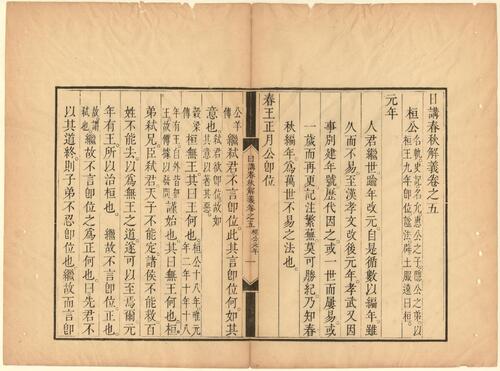 日講春秋解義卷之五
桓公名軌史記名允惠公之子隱公之弟以
桓王九年卽位諡法辟土服遠曰桓
元年
人君繼世踰年改元自是循數以編年雖
久而不易至漢孝文改後元年孝武又因
事別建年號歷代因之或一世而屢易或
一歲而再更記注繁蕪莫可勝紀乃知春
秋編年為萬世不易之法也
春王正月公卽位
日講春秋解義卷之五 桓公元年 一
公羊
傳
繼弒君不言卽位此其言卽位何如其
意也弒君欲卽位故如
其意以著其惡
穀梁
傳
桓無王其曰王何也桓公十八年唯元
年二年十年十八
年有王自外皆無
王故傳據以問
謹始也其曰無王何也桓
弟弒兄臣弒君天子不能定諸侯不能救百
姓不能去以為無王之道遂可以至焉爾元
年有王所以治桓也
繼故不言卽位正也故謂
弒也
繼故不言卽位之為正何也曰先君不
以其道終則子弟不忍卽位也繼故而言卽